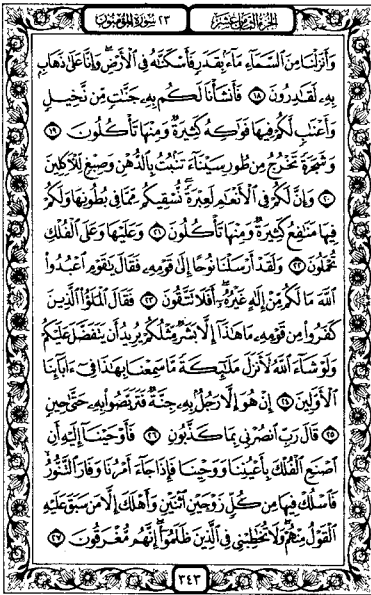 الجزء الثامن عشر ٢٣ سورة المؤمنون
وَأَنزَلْنَا مِنَ ٱلسَّمَآءِ مَآءًۢ بِقَدَرٍ فَأَسْكَنَّٰهُ فِى ٱلْأَرْضِ ۖ وَإِنَّا عَلَىٰ ذَهَابٍۭ
بِهِۦ لَقَٰدِرُونَ ١٨ فَأَنشَأْنَا لَكُم بِهِۦ جَنَّٰتٍ مِّن نَّخِيلٍ
وَأَعْنَٰبٍ لَّكُمْ فِيهَا فَوَٰكِهُ كَثِيرَةٌ وَمِنْهَا تَأْكُلُونَ ١٩
وَشَجَرَةً تَخْرُجُ مِن طُورِ سَيْنَآءَ تَنۢبُتُ بِٱلدُّهْنِ وَصِبْغٍ لِّلْءَاكِلِينَ
٢٠ وَإِنَّ لَكُمْ فِى ٱلْأَنْعَٰمِ لَعِبْرَةً ۖ نُّسْقِيكُم مِّمَّا فِى بُطُونِهَا وَلَكُمْ
فِيهَا مَنَٰفِعُ كَثِيرَةٌ وَمِنْهَا تَأْكُلُونَ ٢١ وَعَلَيْهَا وَعَلَى ٱلْفُلْكِ
تُحْمَلُونَ ٢٢ وَلَقَدْ أَرْسَلْنَا نُوحًا إِلَىٰ قَوْمِهِۦ فَقَالَ يَٰقَوْمِ ٱعْبُدُوا۟
ٱللَّهَ مَا لَكُم مِّنْ إِلَٰهٍ غَيْرُهُۥٓ ۖ أَفَلَا تَتَّقُونَ ٢٣ فَقَالَ ٱلْمَلَؤُا۟ ٱلَّذِينَ
كَفَرُوا۟ مِن قَوْمِهِۦ مَا هَٰذَآ إِلَّا بَشَرٌ مِّثْلُكُمْ يُرِيدُ أَن يَتَفَضَّلَ عَلَيْكُمْ
وَلَوْ شَآءَ ٱللَّهُ لَأَنزَلَ مَلَٰٓئِكَةً مَّا سَمِعْنَا بِهَٰذَا فِىٓ ءَابَآئِنَا
ٱلْأَوَّلِينَ ٢٤ إِنْ هُوَ إِلَّا رَجُلٌۢ بِهِۦ جِنَّةٌ فَتَرَبَّصُوا۟ بِهِۦ حَتَّىٰ حِينٍ
٢٥ قَالَ رَبِّ ٱنصُرْنِى بِمَا كَذَّبُونِ ٢٦ فَأَوْحَيْنَآ إِلَيْهِ أَنِ
ٱصْنَعِ ٱلْفُلْكَ بِأَعْيُنِنَا وَوَحْيِنَا فَإِذَا جَآءَ أَمْرُنَا وَفَارَ ٱلتَّنُّورُ ۙ
فَٱسْلُكْ فِيهَا مِن كُلٍّ زَوْجَيْنِ ٱثْنَيْنِ وَأَهْلَكَ إِلَّا مَن سَبَقَ عَلَيْهِ
ٱلْقَوْلُ مِنْهُمْ ۖ وَلَا تُخَٰطِبْنِى فِى ٱلَّذِينَ ظَلَمُوٓا۟ ۖ إِنَّهُم مُّغْرَقُونَ ٢٧
٣٤٣